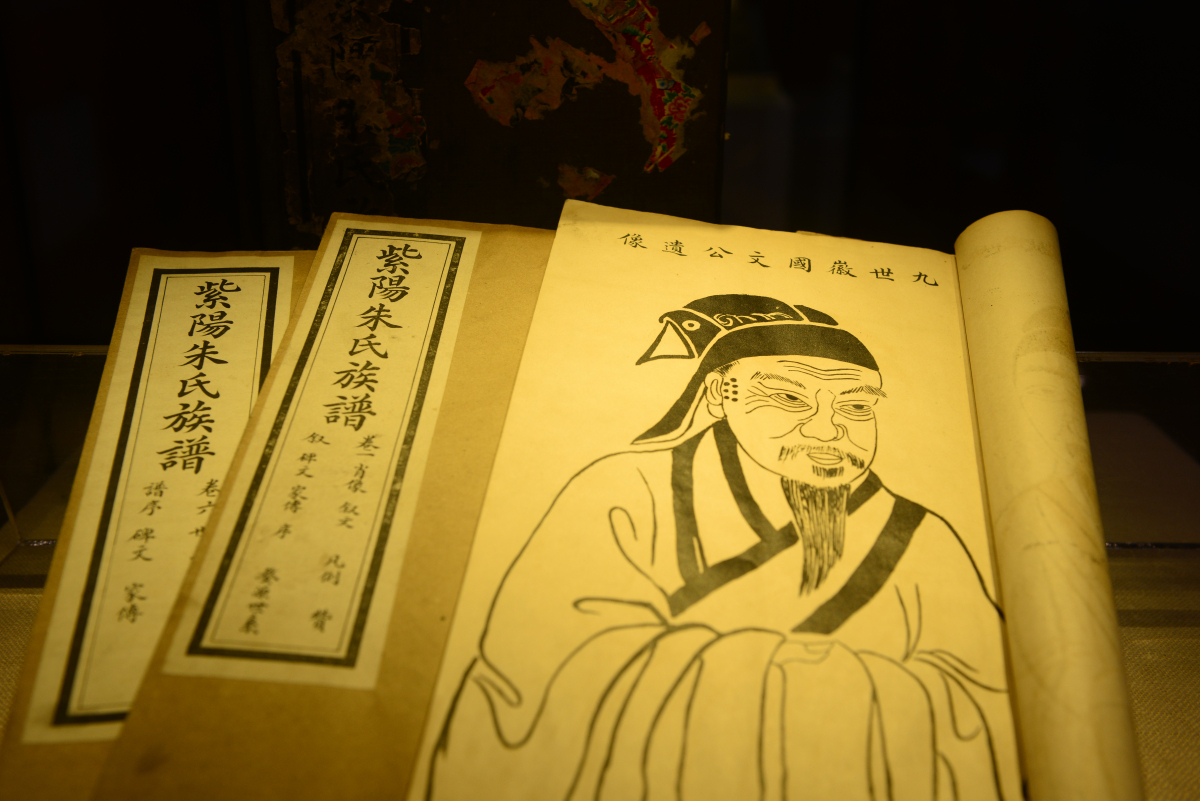 九世徽國文公遺像
紫陽朱氏族譜
卷一 肖像 叙文 凡例 贊
叙 碑文 家傳 序 世系
紫陽朱氏族譜
卷六 世
譜序 碑文 家傳